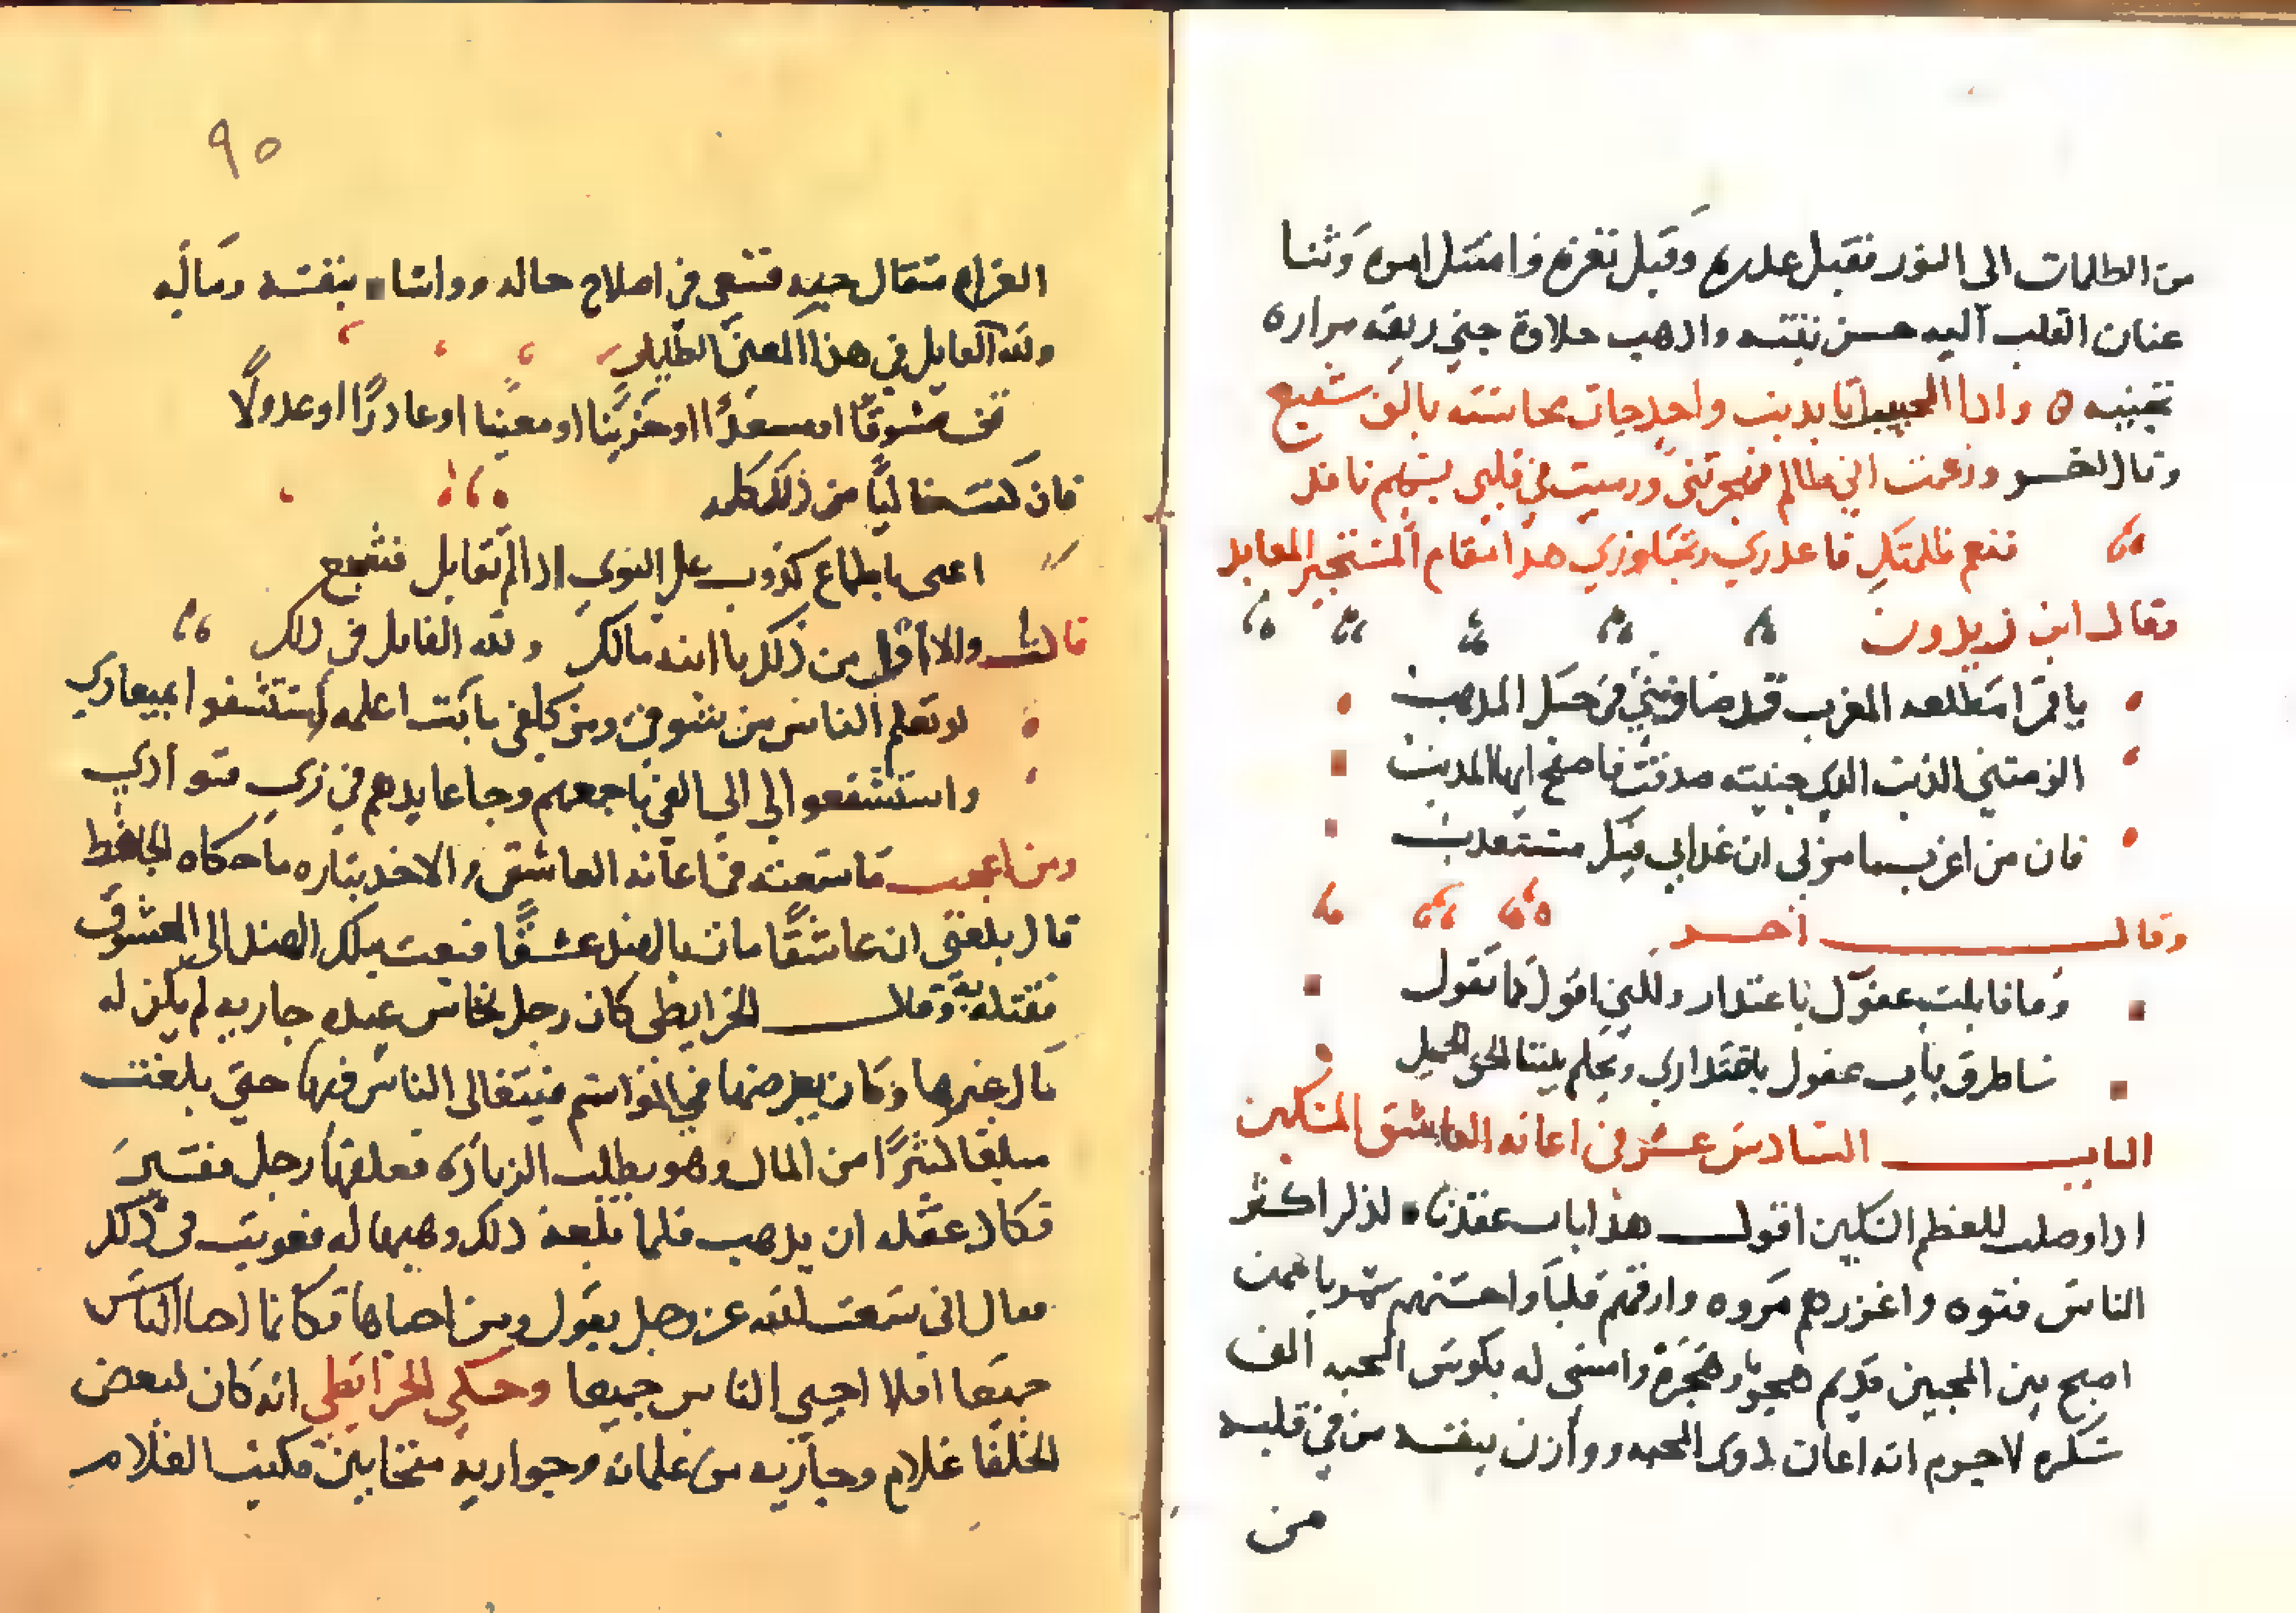 من الظلمات الى النور فقبل عذره وقبل ثغره وامتثل امره وثنا
عنان القلب اليه حسن نيته واذهب حلاوة جني ريقه مرارة
تجنيه واذا الحبيب اتا بذنب واحد جات محاسنه بالف شفيع
وقال اخر وزعمت اني ظالم فهجرتني ورميت في قلبي بسهم نافد
فنعم ظلمتك فاعدري وتجاوزي هدا مقام المستجير العايد
وقال ابن زيدون
يا قمرا مطلعه المغرب قد ضاق بي في حبك المدهب
الزمتني الذنب الدي جنيته صدقت فاصفح ايها المدنب
فان من اغرب ما مر لي ان عدابي فيك مستعدب
وقال اخر
وما قابلت عفوك باعتدار ولكني اقول كما تقول
ساطرق باب عفوك باقتداري ويحكم بيننا الخلق الجميل
الباب السادس عشر في اعانة العاشق المسكين
ادا وصلت للعظم السكين اقول هذا باب عقدناه لذكر اكثر
الناس فتوه واغزرهم مروه وارقهم قلبا واحسنهم
اصبح بين المحبين قديم هجره وامسى له بكوس المحبه الف
سكره لا جرم انه اعان ذوى المحبه ووازن بنفسه من في قلبه
من
٩٥
الغرام مثقال حبه فسعى في اصلاح حاله وواساه بنفسه وماله
ولله القايل في هذا المعنى
تحف مشوقا او مسعدا او حزينا او معينا او عادرا او عدولا
فان كنت خاليا من ذلك كله
باطماع كذوب على النوى ادا لم تقابل
قالت والا اقل من ذلك يا ابنه مالك ولله القايل في ذلك
لو تعلم الناس من شوقي ومن كلفي ما بت اعلمه استشفوا بميعادي
واستشفعوا لي الى الفي باجمعهم وجا عايدهم في زي
ومن اعجب ما سمعته في اعانه العاشق والاخد بتاره ما حكاه الجاحظ
قال بلغني ان عاشقا مات بالهند عشقا فبعث ملك الهند الى المعشوق
فقتله به وقال الخرايطي كان رجل نخاس عنده جاريه لم يكن له
مال غيرها وكان يعرضها في المواسم فيتغالى الناس فيها حتى بلغت
مبلغا كثيرا من المال وهو يطلب الزياده فعلقها رجل فقير
فكاد عقله ان يدهب فلما بلغه ذلك وهبها له فعوتب في ذلك
فقال اني سمعت الله عز وجل يقول ومن احياها فكانما احيا الناس
جميعا افلا احيي الناس جميعا وحكى الخرائطي انه كان لبعض
الخلفا غلام وجاريه من غلمانه وجواريه متحابين فكتب الغلام